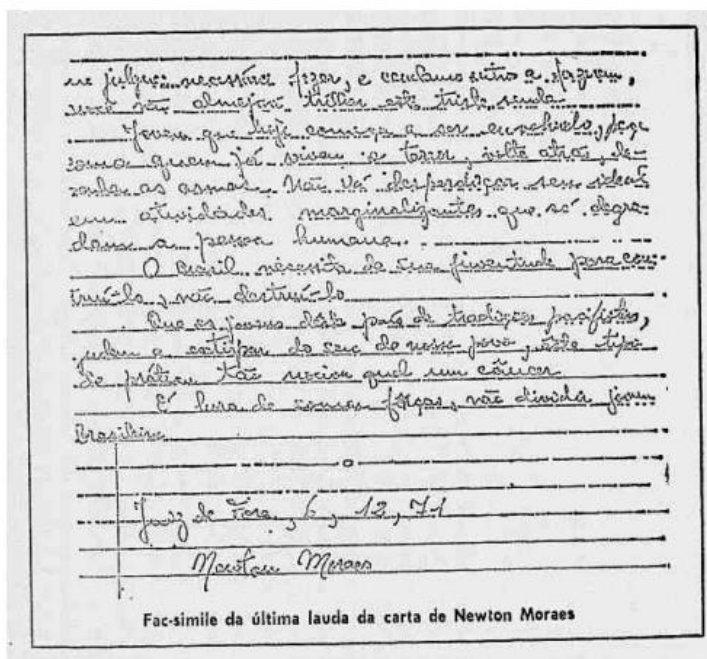 me julguei necessário fazer, e conclamo outro a fazerem,
você não almejar trilhar esta triste senda.
Jovem que hoje começa a ser envolvido, peço
como quem já viveu o terror, volte atrás, de-
ponha as armas. Não vá desperdiçar seus ideais
em atividades marginalizantes que só degra-
dam a pessoa humana.
O Brasil necessita da sua juventude para cons-
truí-lo, não destruí-lo
Que os jovens deste país de tradições pacifistas,
ajudem a extirpar do seio do nosso povo, este tipo
de prática tão nociva qual um câncer
É hora de somar forças, não dividir jovem
Brasileiro
Juiz de Fora, 6, 12, 71
Newton Moraes
Fac-simile da última lauda da carta de Newton Moraes